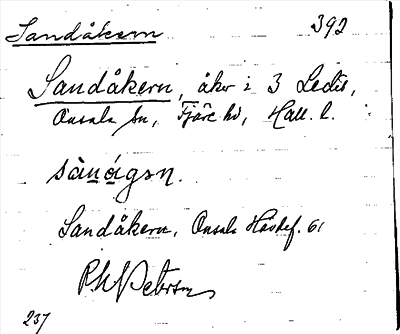 Sandåkern 392
Sandåkern, åker i 3 Ledit,
Onsala sn, Fjäre hd, Hall. l.
sànágən.
Sandåkern, Onsala Hävdef. 61
237